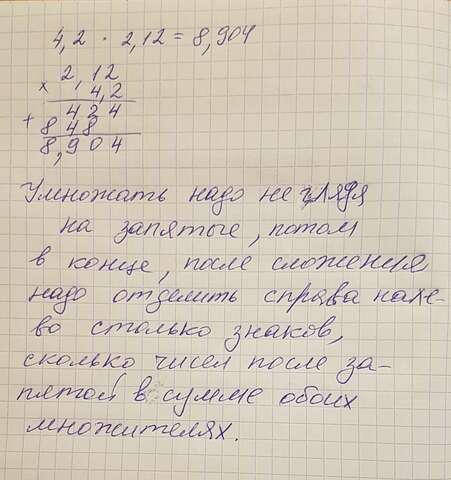 4,2 · 2,12 = 8,904
2,12
× 4,2
424
+ 848
8,904
Умножать надо не глядя
на запятые, потом
в конце, после сложения
надо отделить справа нале-
во столько знаков,
сколько чисел после за-
пятой в сумме обоих
множителях.